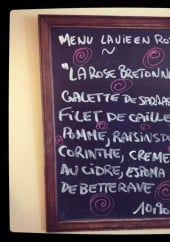 MENU LA VIE EN RO
"LA ROSE BRETONN
GALETTE DE SARRAS
FILET DE CAILLE
POMME, RAISINS D
CORINTHE, CREME
AU CIDRE, ESPUMA
DE BETTERAVE